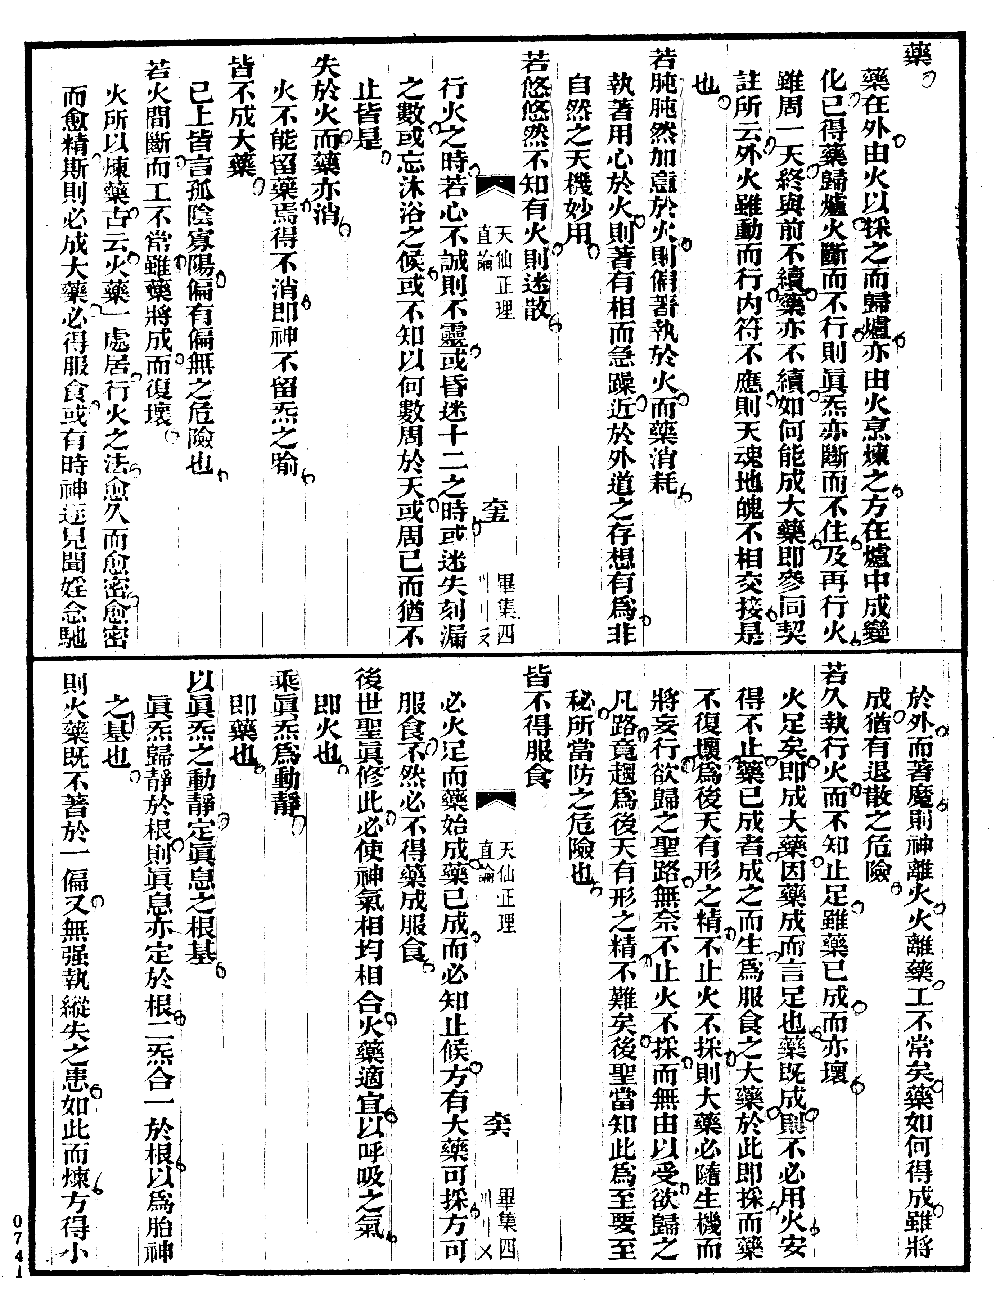 藥
藥在外由火以採之而歸爐亦由火烹煉之方在爐中成變
化已得藥歸爐火斷而不行則眞炁亦斷而不住及再行火
雖周一天終與前不續藥亦不續如何能成大藥卽參同契
註所云外火雖動而行內符不應則天魂地魄不相交接是
也
若肫肫然加意於火則偏著執於火而藥消耗
執著用心於火則著有相而急躁近於外道之存想有爲非
自然之天機妙用
若悠悠然不知有火則迷散
天仙正理
直論
畢集四
行火之時若心不誠則不靈或昏迷十二之時或迷失刻漏
之數或忘沐浴之候或不知以何數周於天或周已而猶不
止皆是
失於火而藥亦消
火不能留藥焉得不消卽神不留炁之喻
皆不成大藥
已上皆言孤陰寡陽偏有偏無之危險也
若火間斷而工不常雖藥將成而復壞
火所以煉藥古云火藥一處居行火之法愈久而愈密愈密
而愈精斯則必成大藥必得服食或有時神逐見聞婬念馳
於外而著魔則神離火火離藥工不常矣藥如何得成雖將
成猶有退散之危險
若久執行火而不知止足雖藥已成而亦壞
火足矣卽成大藥因藥成而言足也藥既成則不必用火安
得不止藥已成者成之而生爲服食之大藥於此卽採而藥
不復壞爲後天有形之精不止火不採則大藥必隨生機而
將妄行欲歸之聖路無奈不止火不採而無由以受欲歸之
凡路竟趨爲後天有形之精不難矣後聖當知此爲至要至
秘所當防之危險也
皆不得服食
天仙正理
直論
畢集四
必火足而藥始成藥已成而必知止候方有大藥可採方可
服食不然必不得藥成服食
後世聖眞修此必使神氣相均相合火藥適宜以呼吸之氣
卽火也
乘眞炁爲動靜
卽藥也
以眞炁之動靜定眞息之根基
眞炁歸靜於根則眞息亦定於根二炁合一於根以爲胎神
之基也
則火藥既不著於一偏又無强執縱失之患如此而煉方得小
0741